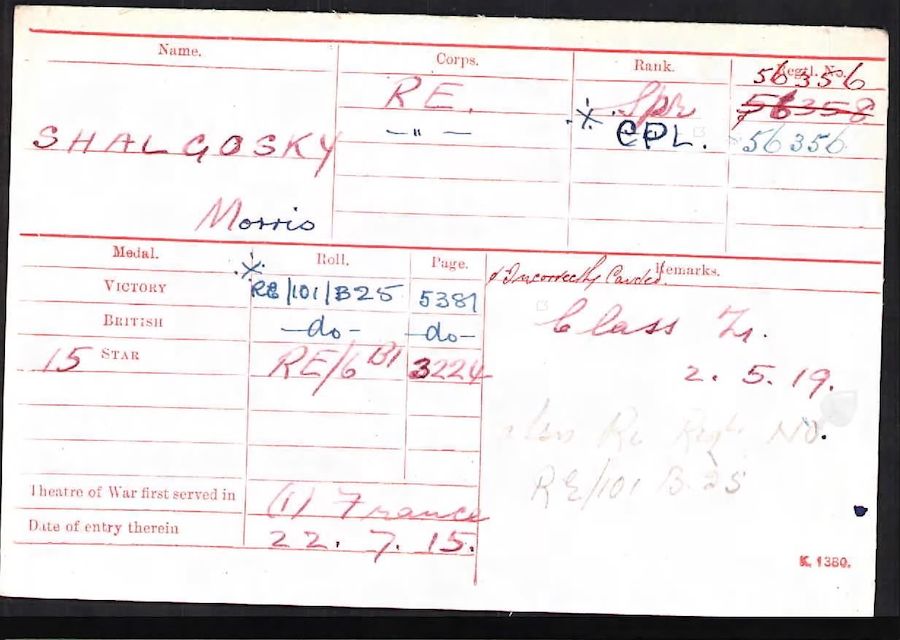 Name.
Corps.
Rank.
Regtl. No.
56356
RE.
Spr
56358
SHALGOSKY
— " —
CPL.
56356
Morris
Medal.
Roll.
Page.
Remarks.
Incorrectly Carded.
VICTORY
RE/101/B25
5381
Class Z.
BRITISH
—do—
—do—
15 STAR
RE/6 B1
3224
2. 5. 19.
Re Regtl. No.
RE/101 B25
Theatre of War first served in
(1) France
Date of entry therein
22. 7. 15.
K. 1380.